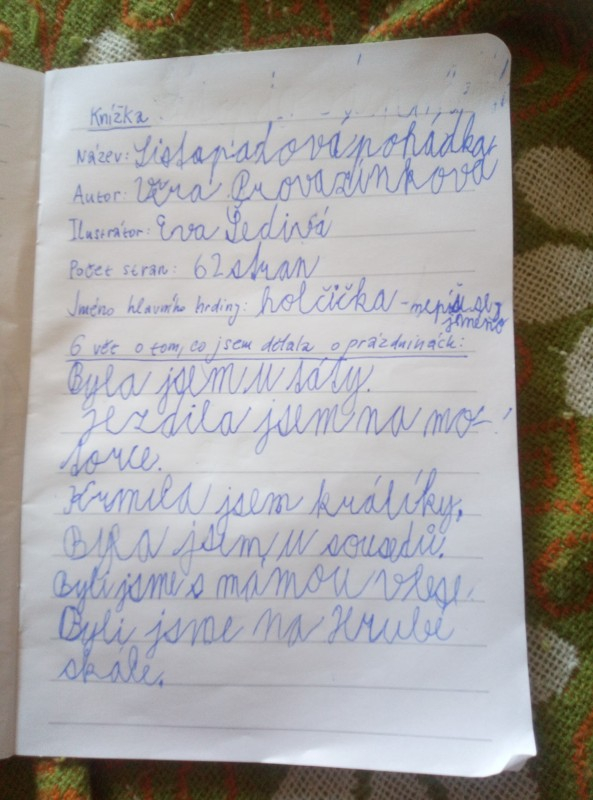 Knížka
Název: Listopadová pohádka
Autor: Věra Provazníková
Ilustrátor: Eva Šedivá
Počet stran: 62 stran
Jméno hlavního hrdiny: holčička - nepíše se
jméno
6 vět o tom, co jsem dělala o prázdninách:
Byla jsem u táty.
Jezdila jsem na mo-
torce.
Krmila jsem králíky.
Byla jsem u sousedů.
Byli jsme s mámou v lese.
Byli jsme na Hrubé
skále.